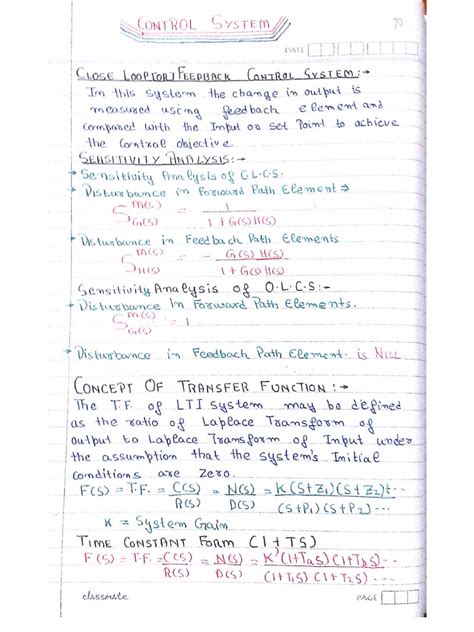 CONTROL SYSTEM
DATE
CLOSE LOOP (OR) FEEDBACK CONTROL SYSTEM:→
In this system the change in output is
measured using feedback element and
compared with the Input or set Point to achieve
the control objective
SENSITIVITY ANALYSIS:→
→ Sensitivity Analysis of C.L.C.S.
→ Disturbance in Forward Path Element ⇒
S^{M(S)}_{G(S)} = 1 / 1 + G(S) H(S)
→ Disturbance in Feedback Path Elements
S^{M(S)}_{H(S)} = - G(S) H(S) / 1 + G(S) H(S)
Sensitivity Analysis of O.L.C.S:-
→ Disturbance In Forward Path Elements.
S^{M(S)}_{G(S)} = 1
→ Disturbance in Feedback Path Element is NILL
CONCEPT OF TRANSFER FUNCTION :→
The T.F. of LTI System may be defined
as the ratio of Laplace Transform of
output to Laplace Transform of Input under
the assumption that the system's Initial
conditions are Zero.
F(S) = T.F. = C(S)/R(S) = N(S)/D(S) = K(S+Z1)(S+Z2)+.../(S+P1)(S+P2)...
K = System Gain
TIME CONSTANT FORM (1+TS)
F(S) = T.F. = C(S)/R(S) = N(S)/D(S) = K'(1+TaS)(1+TbS).../(1+T1S)(1+T2S)...
classmate
PAGE